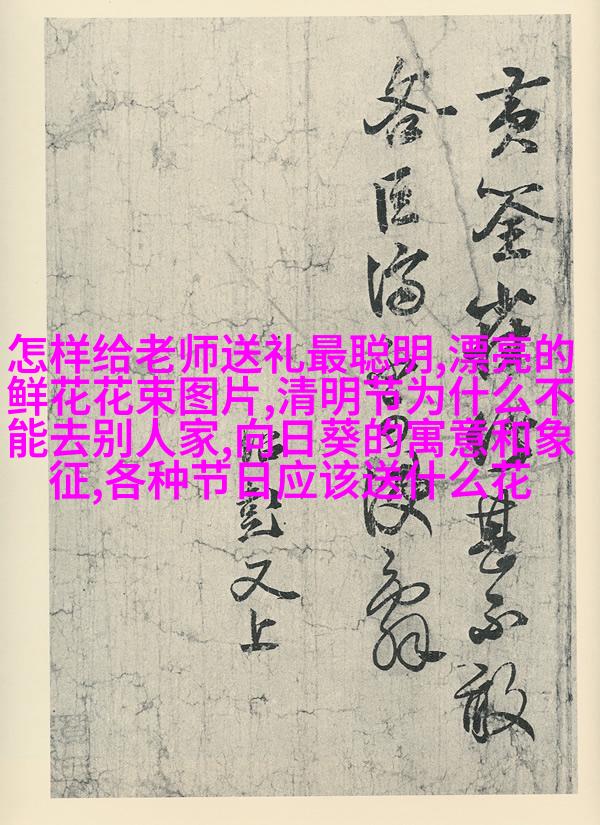 怎样给老师送礼最聪明,漂亮的
鲜花花束图片,清明节为什么不
能去别人家,向日葵的寓意和象
征,各种节日应该送什么花
黄筌甚不敢
又上